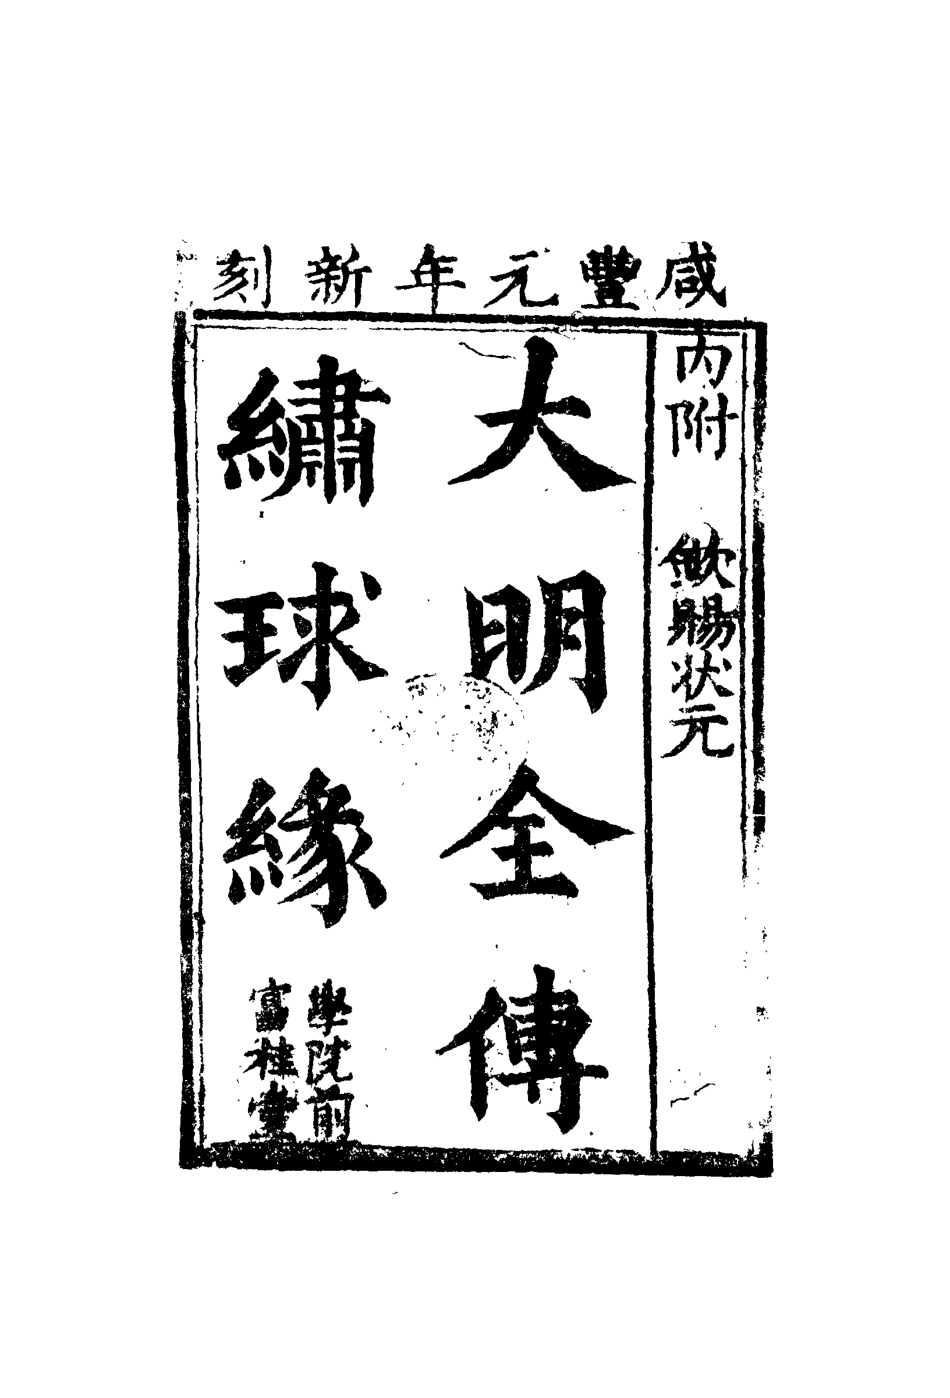 咸豐元年新刻
内附 欽賜状元
大明全傳
繡球緣
學院前
富桂堂